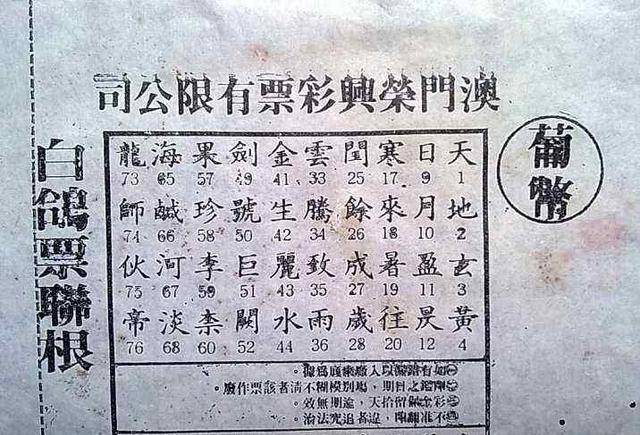 澳門榮興彩票有限公司
葡幣
天 1 地 2 玄 3 黃 4
日 9 月 10 盈 11 昃 12
寒 17 來 18 暑 19 往 20
閏 25 餘 26 成 27 歲 28
雲 33 騰 34 致 35 雨 36
金 41 生 42 麗 43 水 44
劍 49 號 50 巨 51 闕 52
果 57 珍 58 李 59 柰 60
海 65 鹹 66 河 67 淡 68
龍 73 師 74 伙 75 帝 76
如有錯漏以入廠票底為據。
之日期，場別模糊不清者該票作廢。
彩金保留拾天，逾期無效。
不准翻印，違者追究法治。
白鴿票聯根